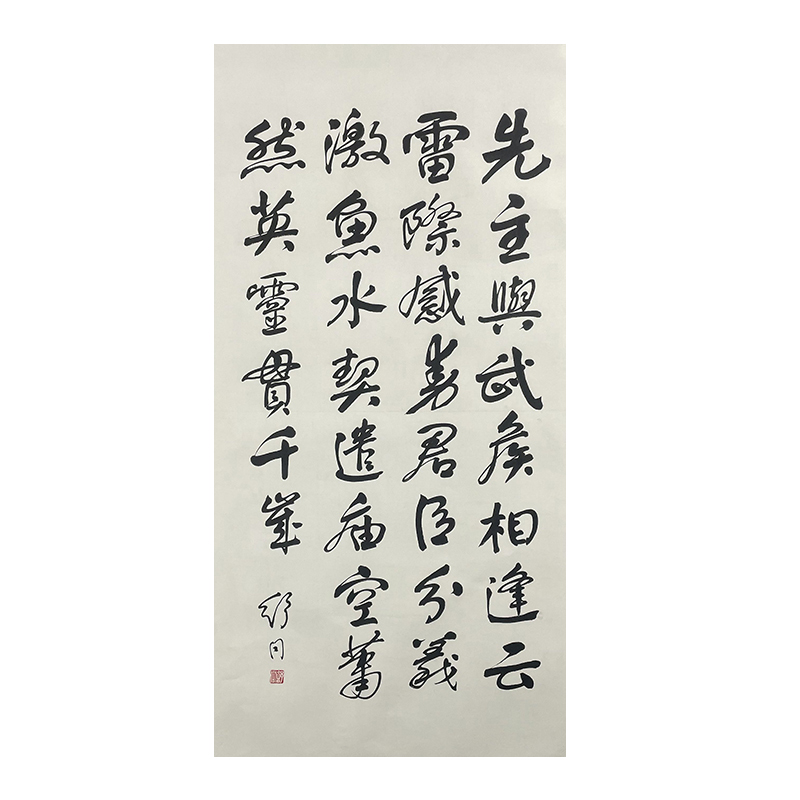 先主與武侯相逢云
雷際感君臣分義
激魚水契遺庙空蕭
然英靈貫千歲
舒同